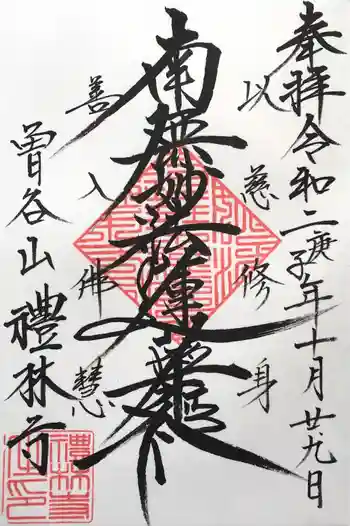 奉拝 令和二庚子年十月廿九日
以慈修身
南無妙法蓮華経
善入佛慧
曽谷山 禮林寺
禮林寺